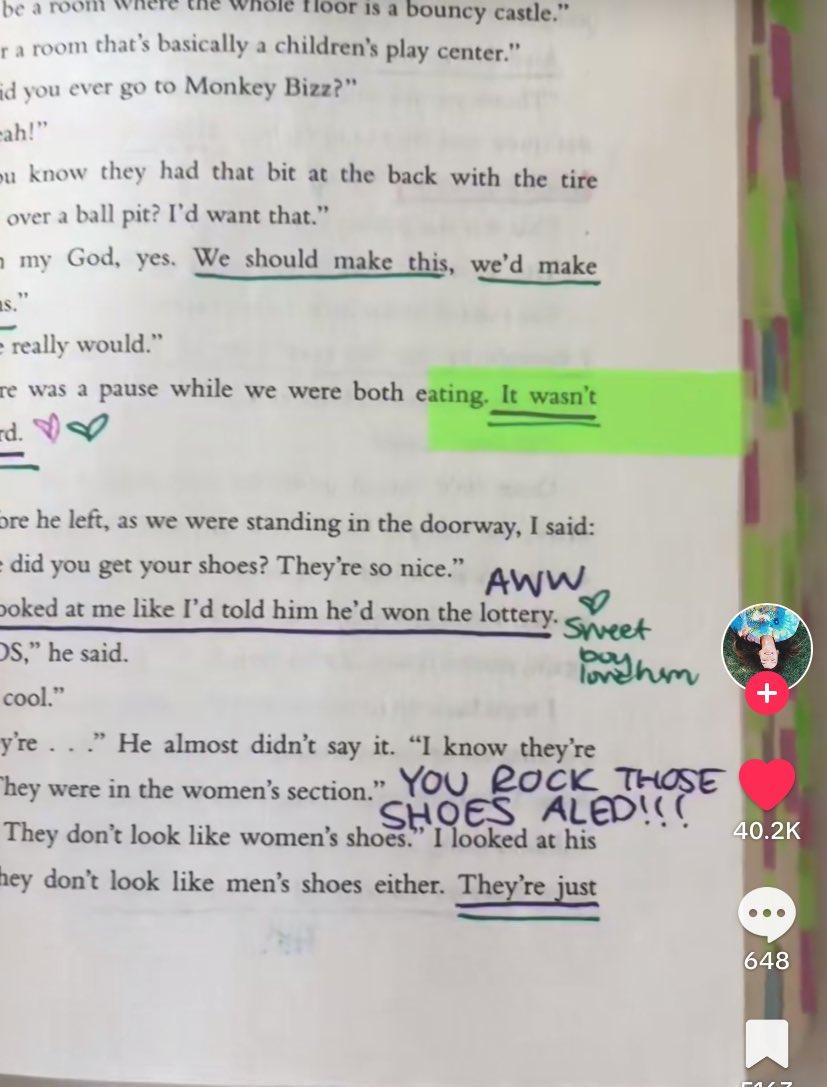 be a room where the whole floor is a bouncy castle.”
r a room that’s basically a children’s play center.”
id you ever go to Monkey Bizz?”
eah!”
ou know they had that bit at the back with the tire
over a ball pit? I’d want that.”
my God, yes. We should make this, we’d make
s.”
e really would.”
re was a pause while we were both eating. It wasn’t
rd.
ore he left, as we were standing in the doorway, I said:
e did you get your shoes? They’re so nice.”
AWW
ooked at me like I’d told him he’d won the lottery.
Sweet
boy
love him
OS,” he said.
cool.”
y’re . . .” He almost didn’t say it. “I know they’re
They were in the women’s section.”
YOU ROCK THOSE
SHOES ALED!!!
They don’t look like women’s shoes.” I looked at his
hey don’t look like men’s shoes either. They’re just
40.2K
648